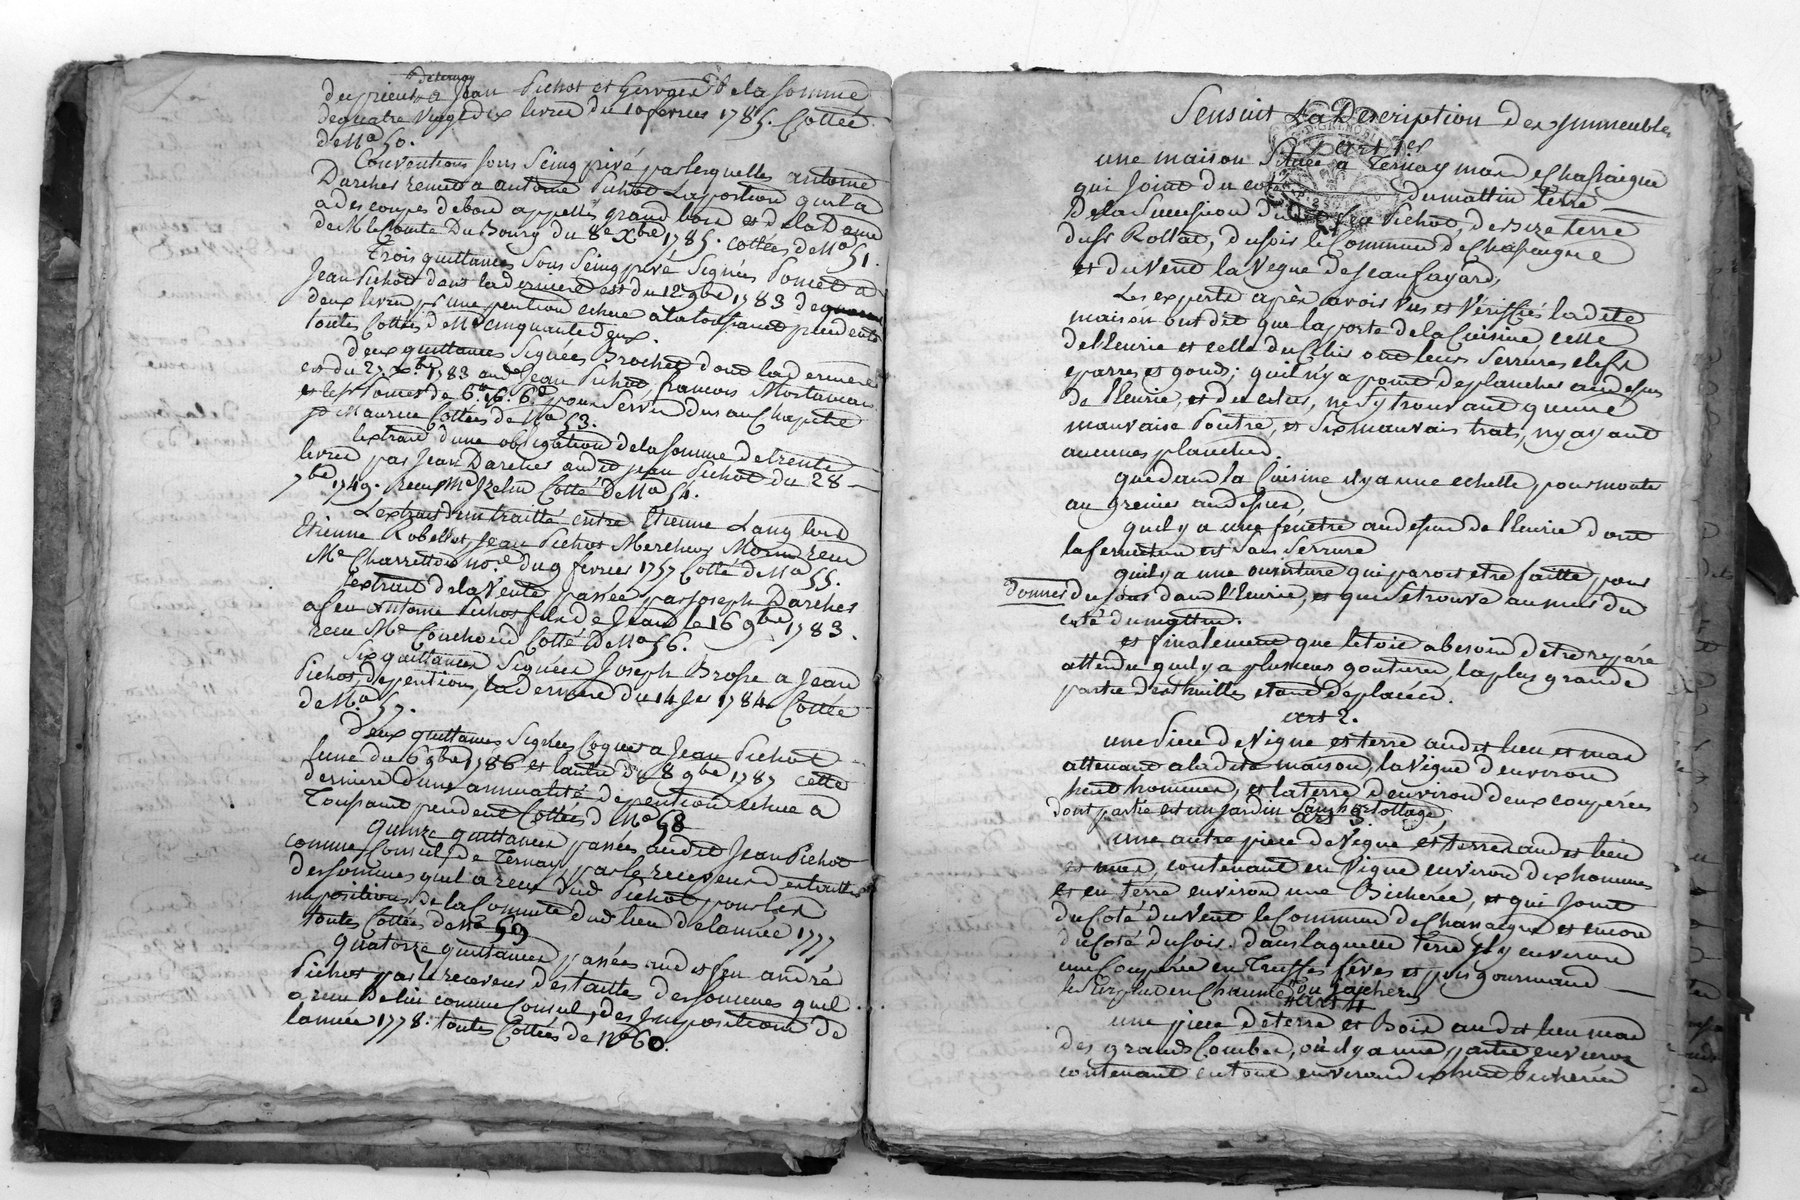 de ternay
du prieur a Jean Pichot et de la somme
de quatre vingt dix livres du 10 fevrier 1785. Cottée
de No 50.
Conventions sous seing privé par lesquelles antoine
Darcher remet a antoine Pichot la portion quil a
a des coupes de bois appellé grand bois et de la Dame
de M le Comte Du Bourg du 8e Xbre 1785. cottée de No 51.
Trois quittances sous seing privé signées Poncet a
Jean Pichot dont la derniere est du 12 9bre 1783 de
deux livres pr une pention echue a la toussaint precedente
toutes Cottées de No cinquante deux.
Deux quittances signées Brochet dont la derniere
est du 27 1783 aud. Jean Pichot, francois
et les somes de 6. 16. 6d pour servis dus au Chapitre
St Maurice Cottées de No 53.
lextrait d'une obligation de la somme de trente
livres par Jean Darcher audit jean Pichot du 28
7bre 1749. Reçu Me Cotté de No 54.
Lextrait d'un traitté entre Etienne Lang
Etienne Robellet, Jean Pichot reçu
Me Charretton nore du 9 fevrier 1757 Cotté de No 55.
lextrait de la Vente passée par joseph Darcher
a feu Antoine Pichot fils de Jean le 16 9bre 1783.
reçu Me Couchoud Cotté de No 56.
Six quittances Signées Joseph Brosse a Jean
Pichot de pentions, la derniere du 14 Jer 1784 Cottée
de No 57.
Deux quittances signées Coquet a Jean Pichot
lune du 6 9bre 1786 et lautre du 8 9bre 1787 cette
derniere d'une annualité de pention echue a
Toussaint precedent Cottées d No 58
quinze quittances passées audit Jean Pichot
comme Consul de Ternay par le receveur des tailles
des sommes quil a reçu dud Pichot pour les
impositions de la Comuté dud. lieu de lannée 1777
toutes Cottées de No 59
quatorze quittances passées aud et feu andré
Pichot par le receveur des tailles des sommes quil
a reçu de lui comme Consul, des Impositions de
lannée 1778. toutes Cottées de No 60.
Sensuit La Description des Immeubles
art 1er
une maison Située a Ternay mas de Chassaigne
qui Joint du coté du mattin terre
de la Succession du feu Pichot, de bize terre
du sr Rollat, du soir le Commun de Chassaigne
et du Vent la Vigne de Jean fayard,
Les experts après avoir Vus et Vériffiés ladite
maison ont dit que la porte de la Cuisine, celle
de lEcurie et celle du Celier ont leurs serrures clefs
eparres et gonds; quil n'y a point de planches au dessus
de lEcurie, et du celier, ne sy trouvant quune
mauvaise Poutre, et Six mauvais trats, n'y ayant
aucunes planches.
que dans la Cuisine il y a une echelle pour monter
au grenier au dessus,
quil y a une fenétre au dessus de lEcurie dont
la fermeture est sans serrure
quil y a une ouverture qui paroit etre faitte pour
donner du jour dans l'Ecurie, et qui se trouve au mur du
coté du mattin.
et finalement que le toit a besoin d'etre reparé
attendu quil y a plusieurs goutieres, la plus grande
partie des thuilles etant déplacées.
art 2.
une Piece de Vigne et terre audit lieu et mas
attenant a ladite maison, la Vigne d'environ
huit hommes, et la terre d'environ deux couperées
dont partie est un jardin sans hortollage,
art 3.
une autre piece de Vigne et terre audit lieu
et mas, contenant en Vigne environ dix hommes
et en terre environ une Bicherée, et qui Joint
du Coté du Vent le Commun de Chassaigne et encore
du Coté du soir. dans laquelle terre il y environ
une Couperée en Truffes fêves et pois gourmand
le surplus en Chaume ou Jachere
art 4
une piece de terre et Bois audit lieu mas
des grands Combes, où il y a une partie en
contenant en tout environ dix huit bicherées